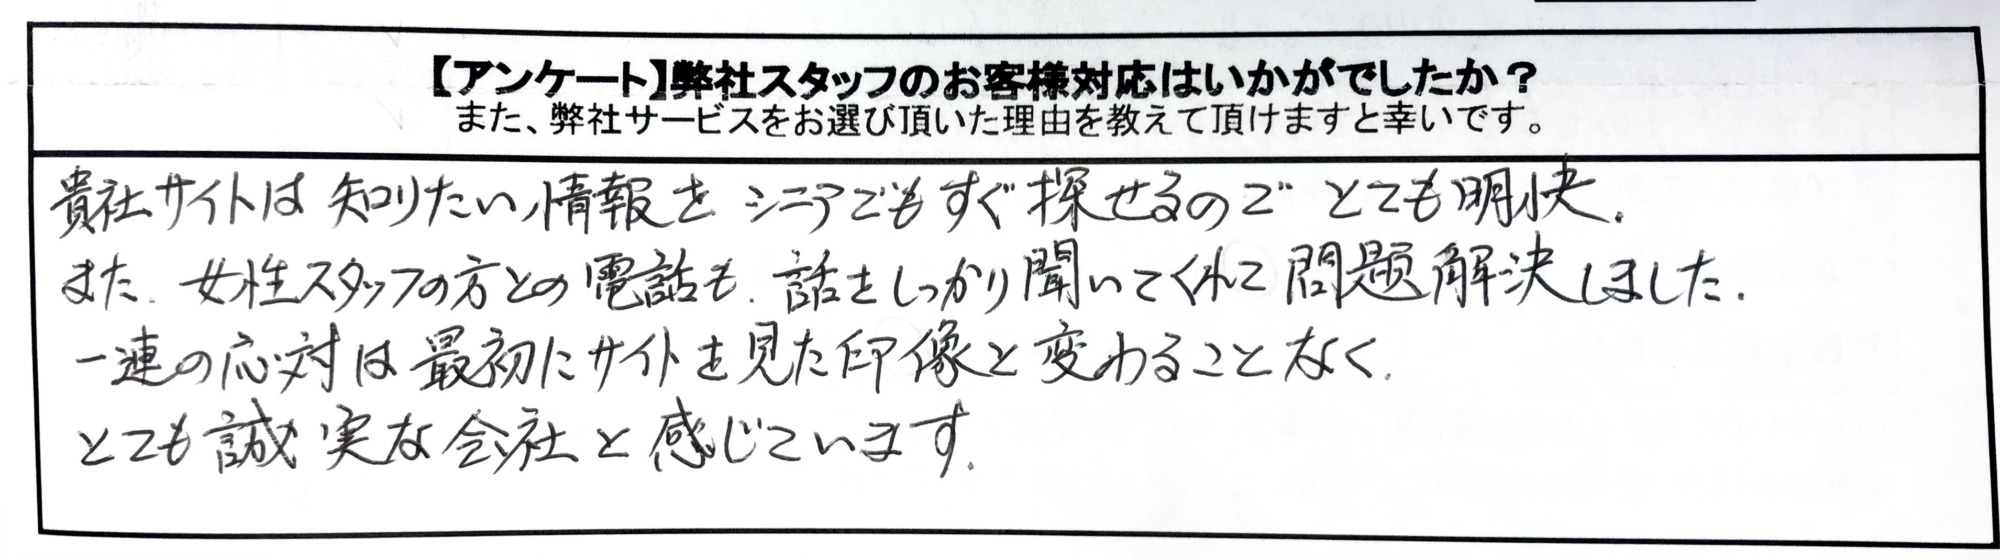 【アンケート】弊社スタッフのお客様対応はいかがでしたか？
また、弊社サービスをお選び頂いた理由を教えて頂けますと幸いです。
貴社サイトは 知りたい情報を シニアでもすぐ探せるので とても明快.
また. 女性スタッフの方との電話も. 話をしっかり聞いてくれて問題解決しました.
一連の応対は最初にサイトを見た印像と変わることなく.
とても誠実な会社と感じています.